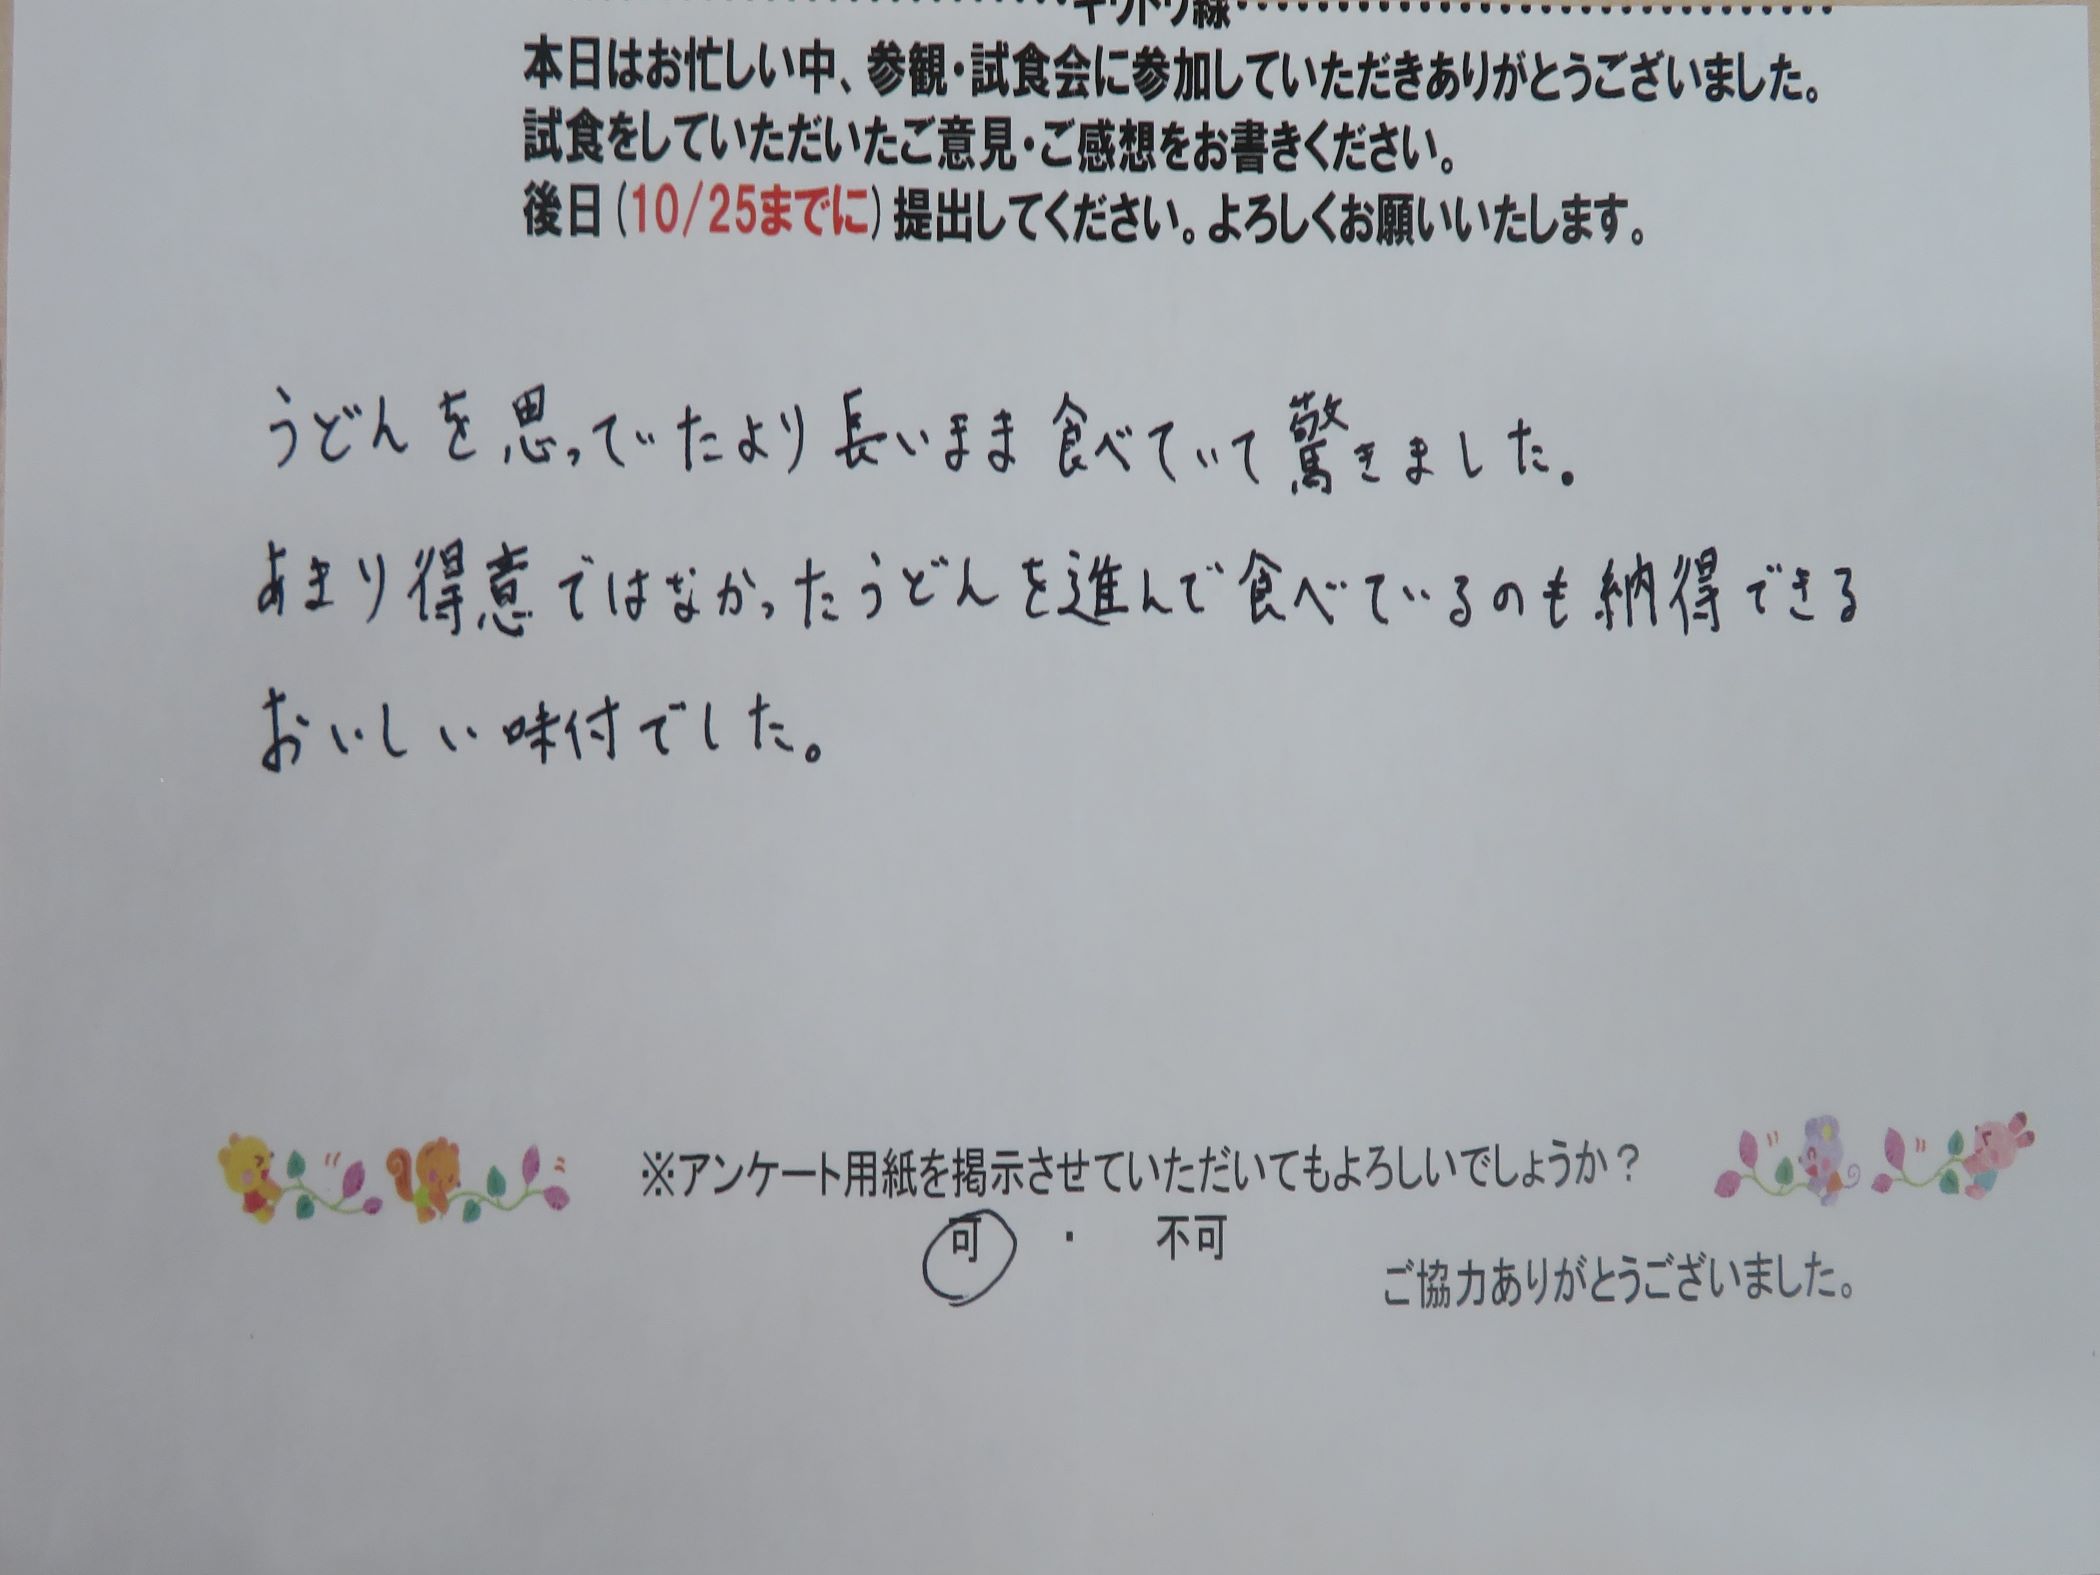 キリトリ線
本日はお忙しい中、参観・試食会に参加していただきありがとうございました。
試食をしていただいたご意見・ご感想をお書きください。
後日(10/25までに)提出してください。よろしくお願いいたします。
うどんを思っていたより長いまま食べていて驚きました。
あまり得意ではなかったうどんを進んで食べているのも納得できる
おいしい味付でした。
※アンケート用紙を掲示させていただいてもよろしいでしょうか？
可 ・ 不可
ご協力ありがとうございました。